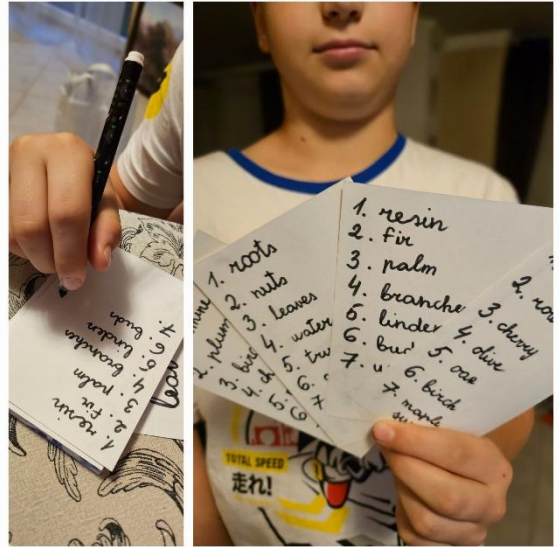 1. resin
2. fir
3. palm
4. branches
5. linden
6.
7.
leav
2. plum
3. bir
4. ch
5.
6
1. roots
2. nuts
3. leaves
4. water
5. tru
6.
7
1. resin
2. fir
3. palm
4. branche
5. linden
6. bu
7. u
2. ro
3. cherry
4. olive
5. oak
6. birch
7. maple
TOTAL SPEED
走れ!